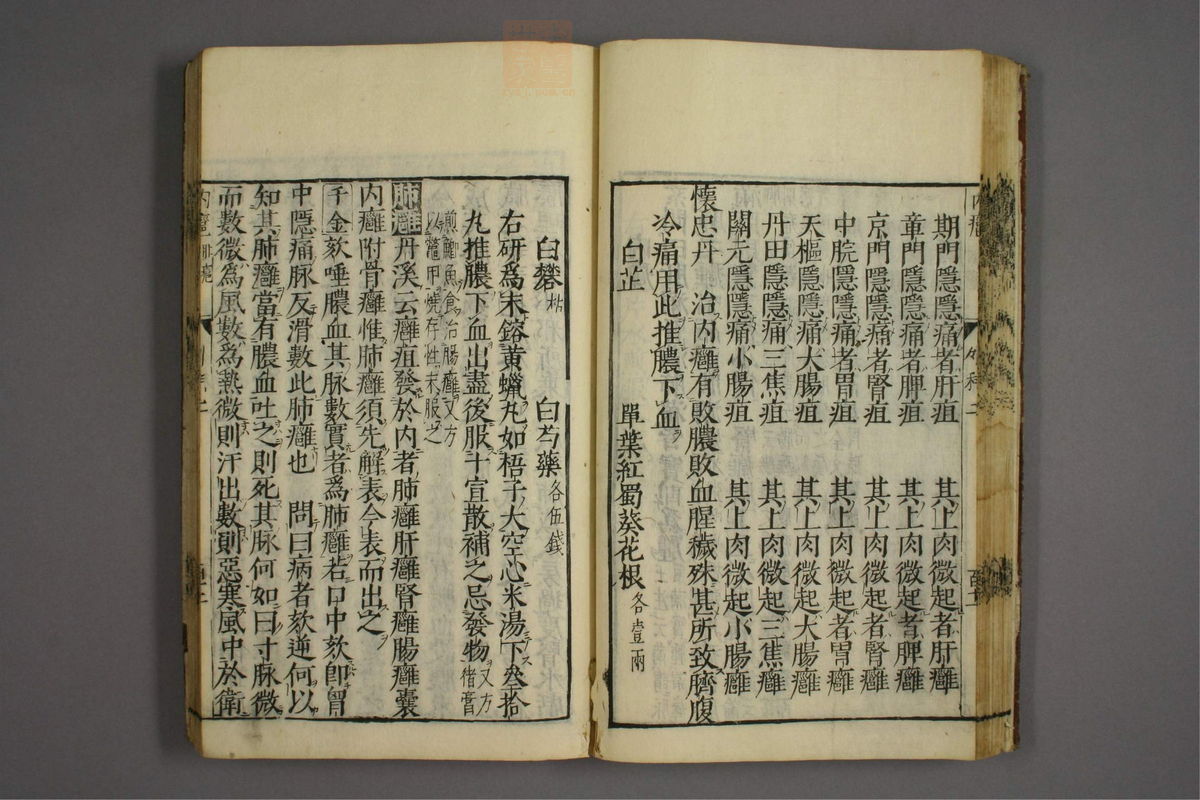 期門隱隱痛者肝疽　其上肉微起者肝癰
章門隱隱痛者脾疽　其上肉微起者脾癰
京門隱隱痛者腎疽　其上肉微起者腎癰
中脘隱隱痛者胃疽　其上肉微起者胃癰
天樞隱隱痛大腸疽　其上肉微起大腸癰
丹田隱隱痛三焦疽　其上肉微起三焦癰
關元隱隱痛小腸疽　其上肉微起小腸癰
懷忠丹　治内癰有敗膿敗血腥穢殊甚所致臍腹
冷痛用此推膿下血
白芷　單葉紅蜀葵花根各壹兩
白礬枯　白芍藥各伍錢
右研爲末鎔黃蠟丸如梧子大空心米湯下叁拾
丸推膿下血出盡後服十宣散補之忌發物又方猪膏
煎鯽魚食治腸癰又方
以鱉甲燒存性末服之
肺癰丹溪云癰疽發於内者肺癰肝癰腎癰腸癰囊
内癰附骨癰惟肺癰須先解表令表而出之
千金欬唾膿血其脉數實者爲肺癰若口中欬卽胷
中隱痛脉反滑數此肺癰也　問曰病者欬逆何以
知其肺癰當有膿血吐之則死其脉何如曰寸脉微
而數微爲風數爲熱微則汗出數則惡寒風中於衛